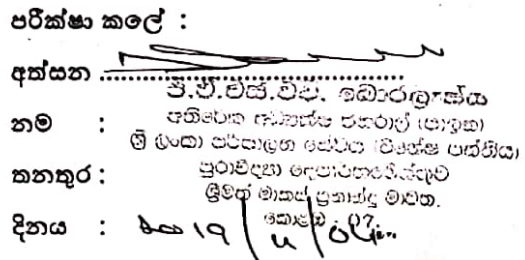 පරීක්ෂා කලේ :
අත්සන ..............................
නම :
අතිරේක අධ්‍යක්ෂ ජනරාල් (පාලන)
ශ්‍රී ලංකා පරිපාලන සේවය (විශේෂ පන්තිය)
තනතුර :
පුරාවිද්‍යා දෙපාර්තමේන්තුව
ශ්‍රීමත් මාකස් ප්‍රනාන්දු මාවත.
කොළඹ 07
දිනය : 2019/11/04